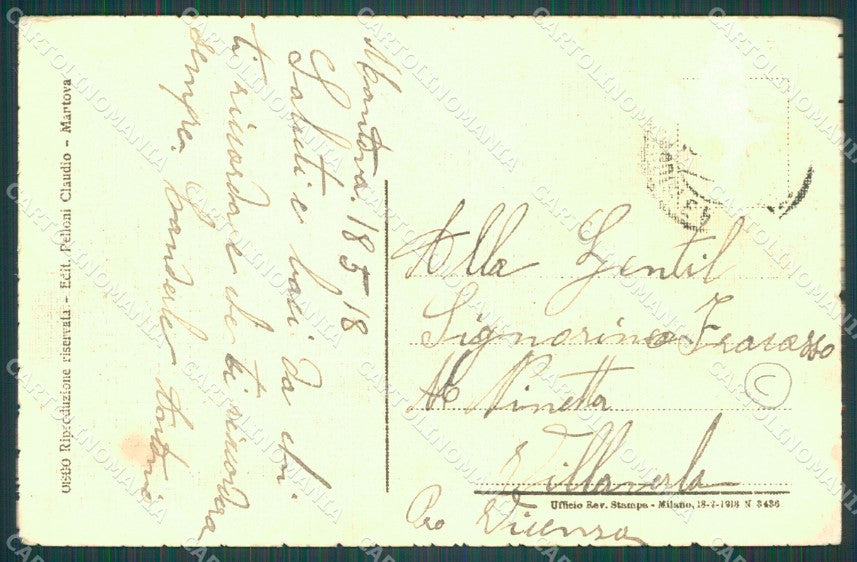 Mantova. 18 5 18
Saluti e baci da chi
ti ricorda e che ti ricordera
sempre.
Alla Gentil
Signorina Fracasso
Ninetta
Villaverla
Pro Vicenza
Ufficio Rev. Stampa - Milano, 18-7-1918 N 3436
Riproduzione riservata - Edit. Pelloni Claudio - Mantova
C
CARTOLINOMANIA